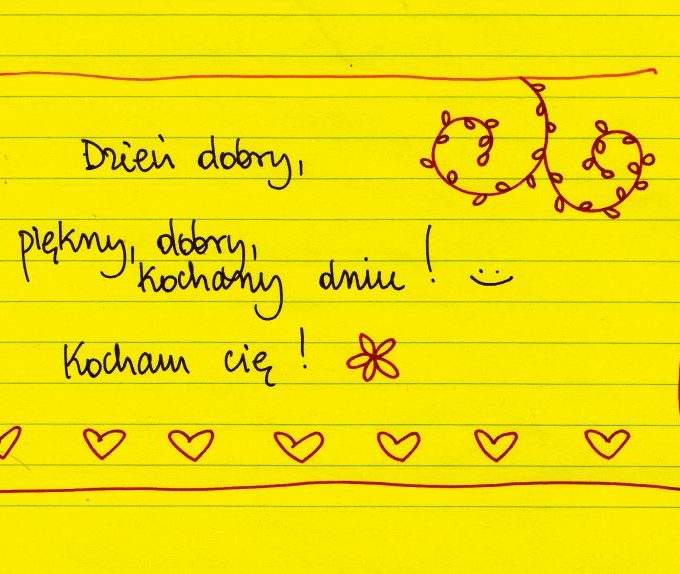 Dzień dobry,
piękny, dobry,
kochany dniu! :)
Kocham cię!